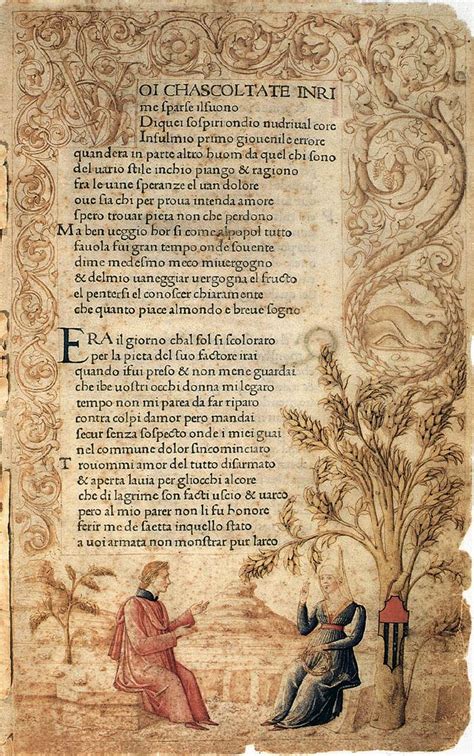 VOI CHASCOLTATE INRI
me sparse ilsuono
Diquei sospiri ondio nudrival core
Insulmio primo giouenile errore
quandera in parte altro huom da quel chi sono
del uario stile inchio piango & ragiono
fra le uane speranze el uan dolore
oue sia chi per proua intenda amore
spero trouar pieta non che perdono
Ma ben ueggio hor si come alpopol tutto
fauola fui gran tempo onde souente
dime medesmo meco miuergogno
& delmio uaneggiar uergogna el fructo
el pentersi el conoscer chiaramente
che quanto piace almondo e breue sogno
ERA il giorno chal sol si scoloraro
per la pieta del suo factore irai
quando ifui preso & non mene guardai
che ibe uostri occhi donna mi legaro
tempo non mi parea da far riparo
contra colpi damor pero mandai
secur senza sospecto onde i miei guai
nel commune dolor sincominciaro
Trouommi amor del tutto disarmato
& aperta lauia per gliocchi alcore
che di lagrime son facti uscio & uarco
pero al mio parer non li fu honore
ferir me de saetta inquello stato
a uoi armata non monstrar pur larco